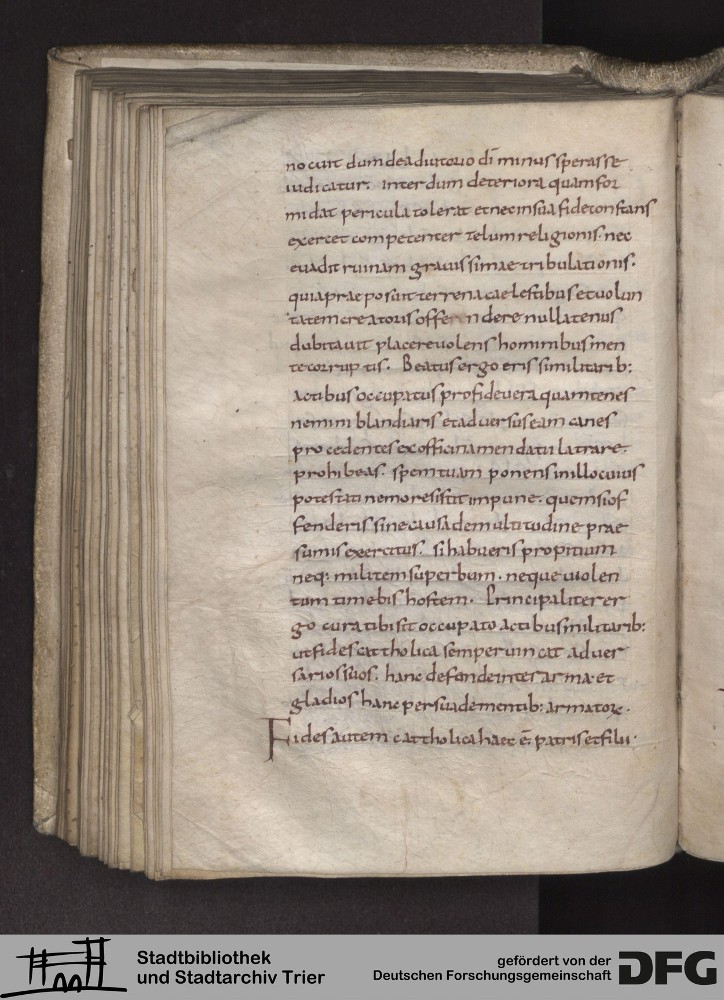 nocuit dum de adiutorio di minus sperasse
iudicatur. interdum deteriora quam for
midat pericula tolerat et nec in sua fide constans
exercet competenter telum religionis. nec
euadit ruinam grauissimae tribulationis.
quia praeposuit terrena caelestibus et uolun
tatem creatoris offendere nullatenus
dubitauit placere uolens hominibus men
te corruptis. Beatus ergo eris si militarib:
actibus occupatus pro fide uera quam tenes
nemini blandiaris et aduersus eam canes
procedentes ex officina mendatii latrare.
prohibeas. spem tuam ponens in illo cuius
potestati nemo resistit impune. quem si of
fenderis sine causa de multitudine prae
sumis exercitus. si habueris propitium
neq: militem superbum. neque uiolen
tum timebis hostem. Principaliter er
go cura tibi sit occupato actibus militarib:
ut fides cattholica semper uincat aduer
sarios suos. hanc defende inter arma et
gladios hanc persuade mentib: armatorum.
Fides autem cattholica haec ē. patris et filii.
Stadtbibliothek
und Stadtarchiv Trier
gefördert von der
Deutschen Forschungsgemeinschaft
DFG